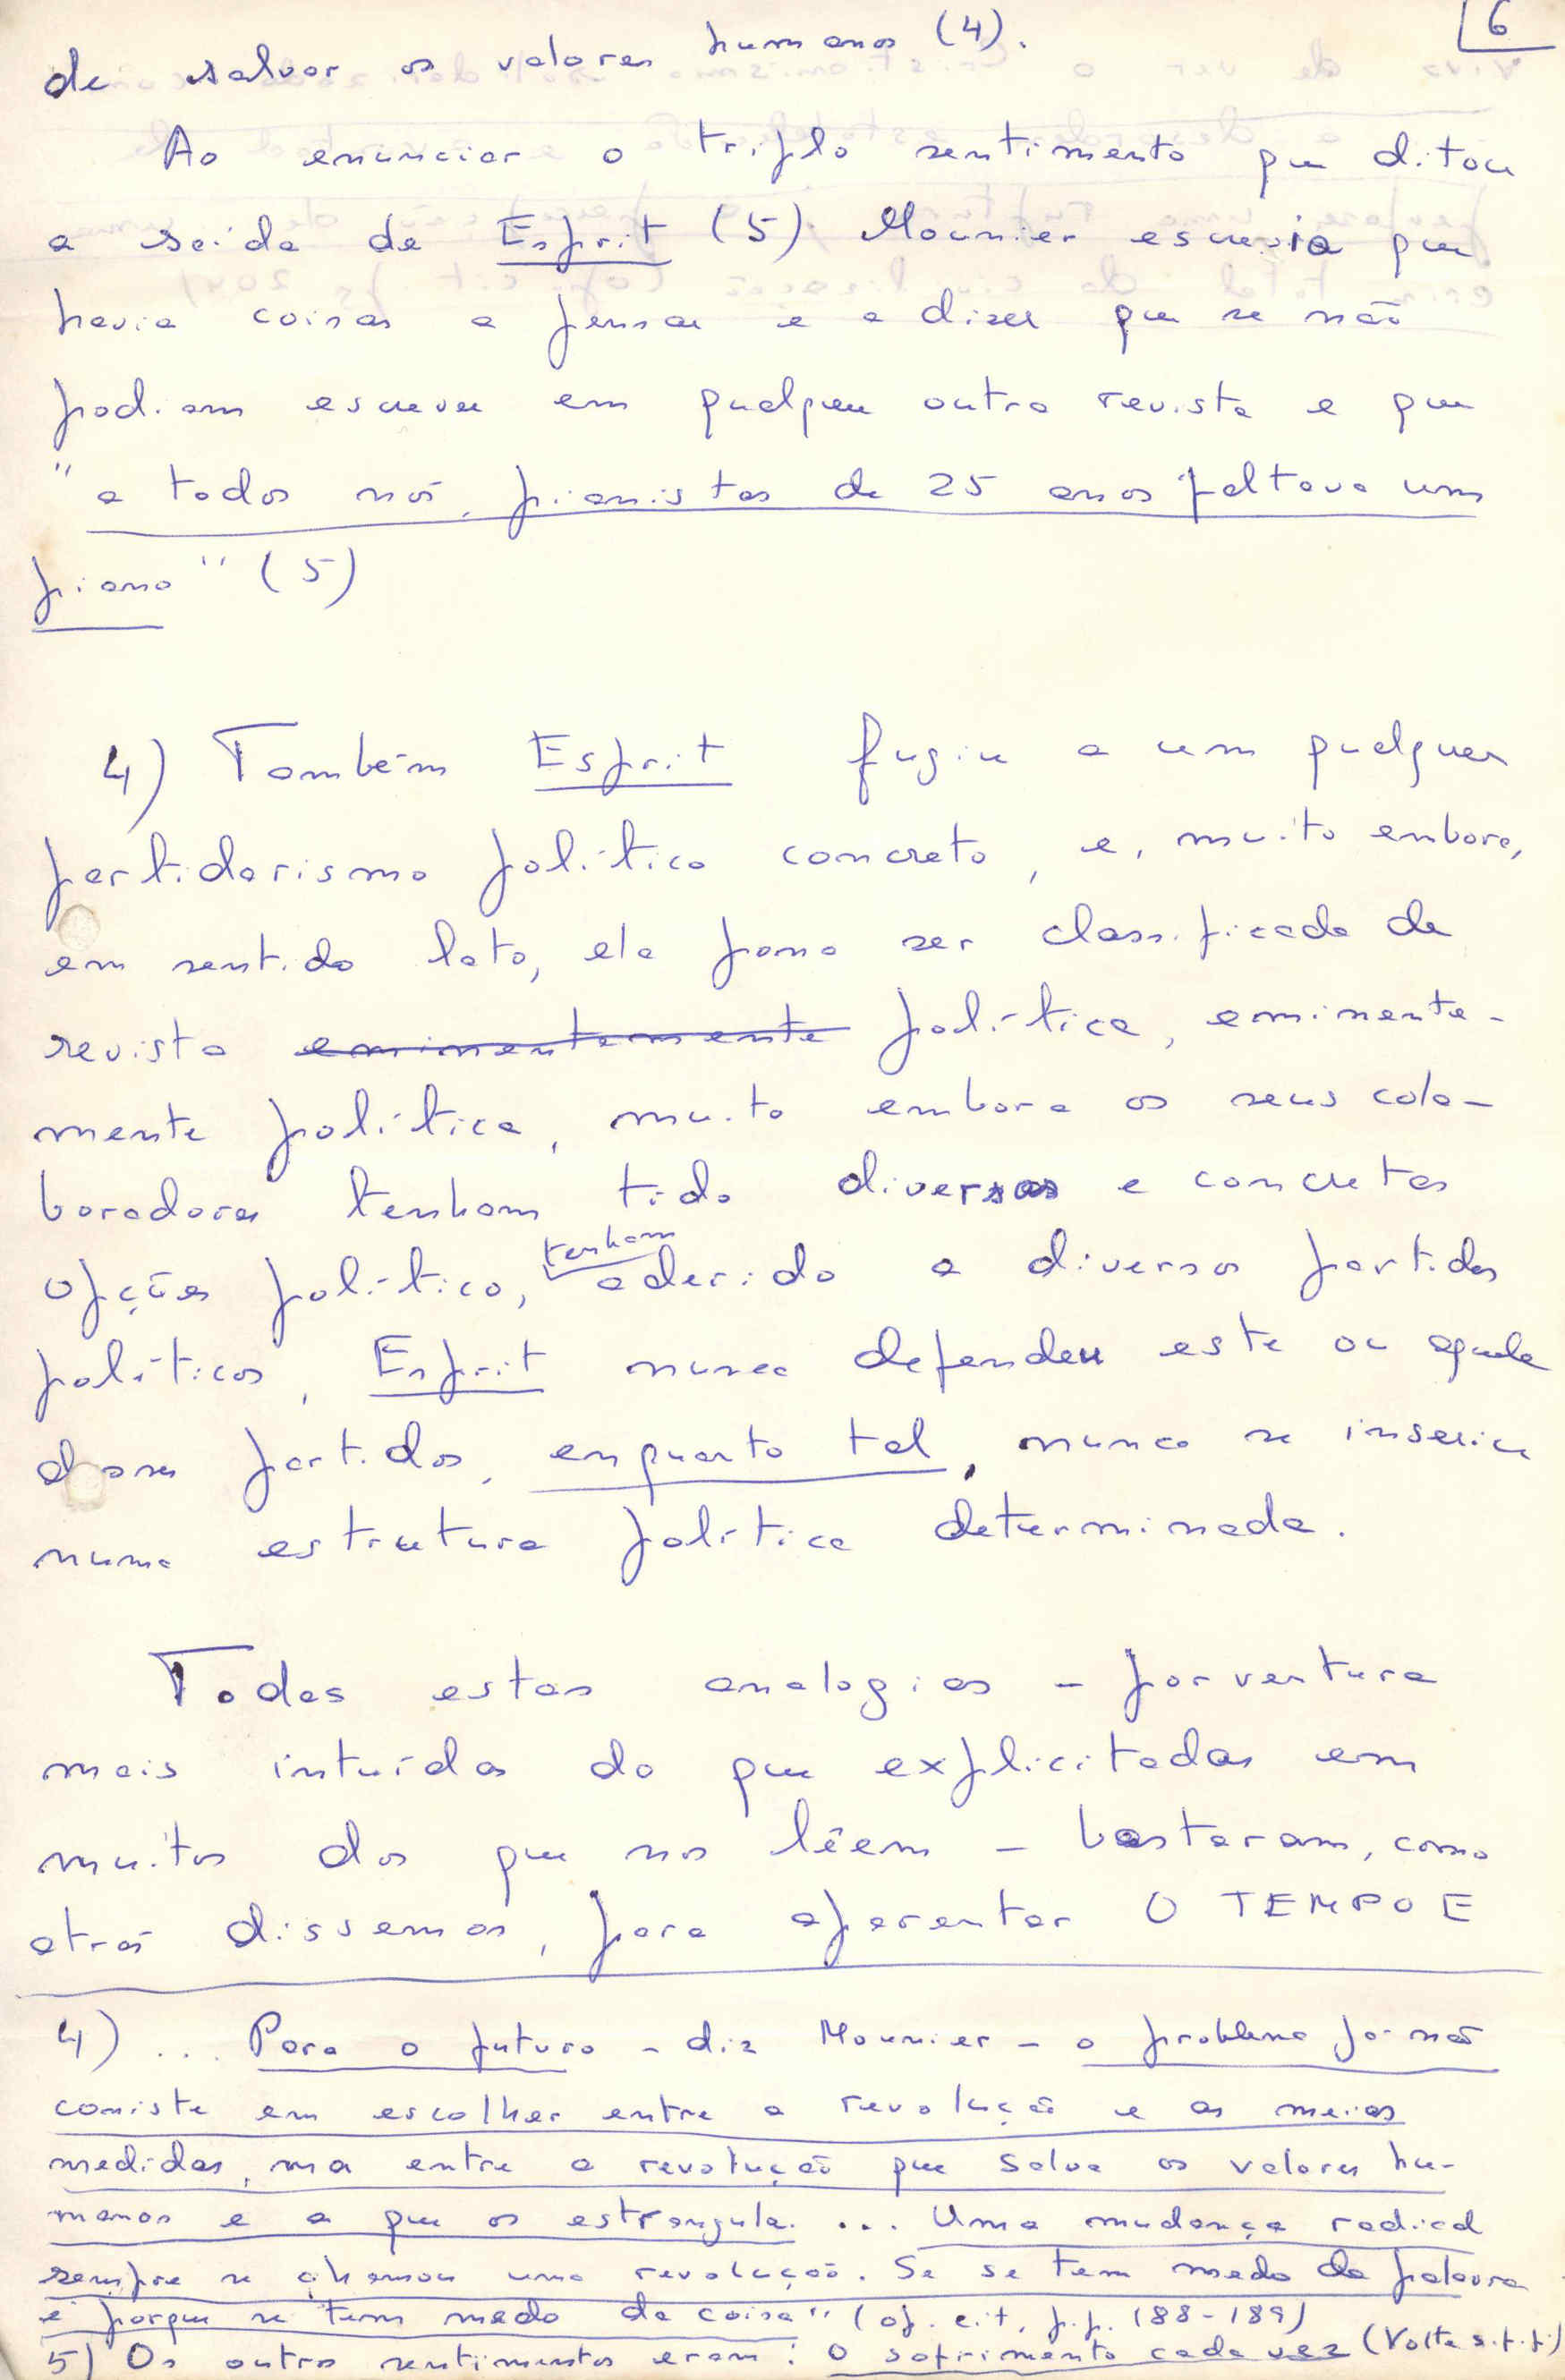 6
de salvar os valores humanos (4).
Ao enunciar o triplo sentimento que ditou
a saída de Esprit (5) Mounier escrevia que
havia coisas a pensar e a dizer que se não
podiam escrever em qualquer outra revista e que
"a todos nós, pianistas de 25 anos faltava um
piano" (5)
4) Também Esprit fugiu a um qualquer
partidarismo político concreto, e, muito embora,
em sentido lato, ela possa ser classificada de
revista eminentemente política, eminente-
mente política, muito embora os seus cola-
boradores tenham tido diversas e concretas
opções política, tenham aderido a diversos partidos
políticos, Esprit nunca defendeu este ou aquele
desses partidos, enquanto tal, nunca se inseriu
numa estrutura política determinada.
Todas estas analogias - porventura
mais intuídas do que explicitadas em
muitos dos que nos lêem - bastaram, como
atrás dissemos, para aparentar O TEMPO E
4) ... Para o futuro - diz Mounier - o problema já não
consiste em escolher entre a revolução e as meias
medidas, mas entre a revolução que salva os valores hu-
manos e a que os estrangula. ... Uma mudança radical
sempre se chamou uma revolução. Se se tem medo da palavra
é porque se tem medo da coisa" (op. cit, p.p. 188-189)
5) Os outros sentimentos eram: O sofrimento cada vez (Volte s.f.f.)